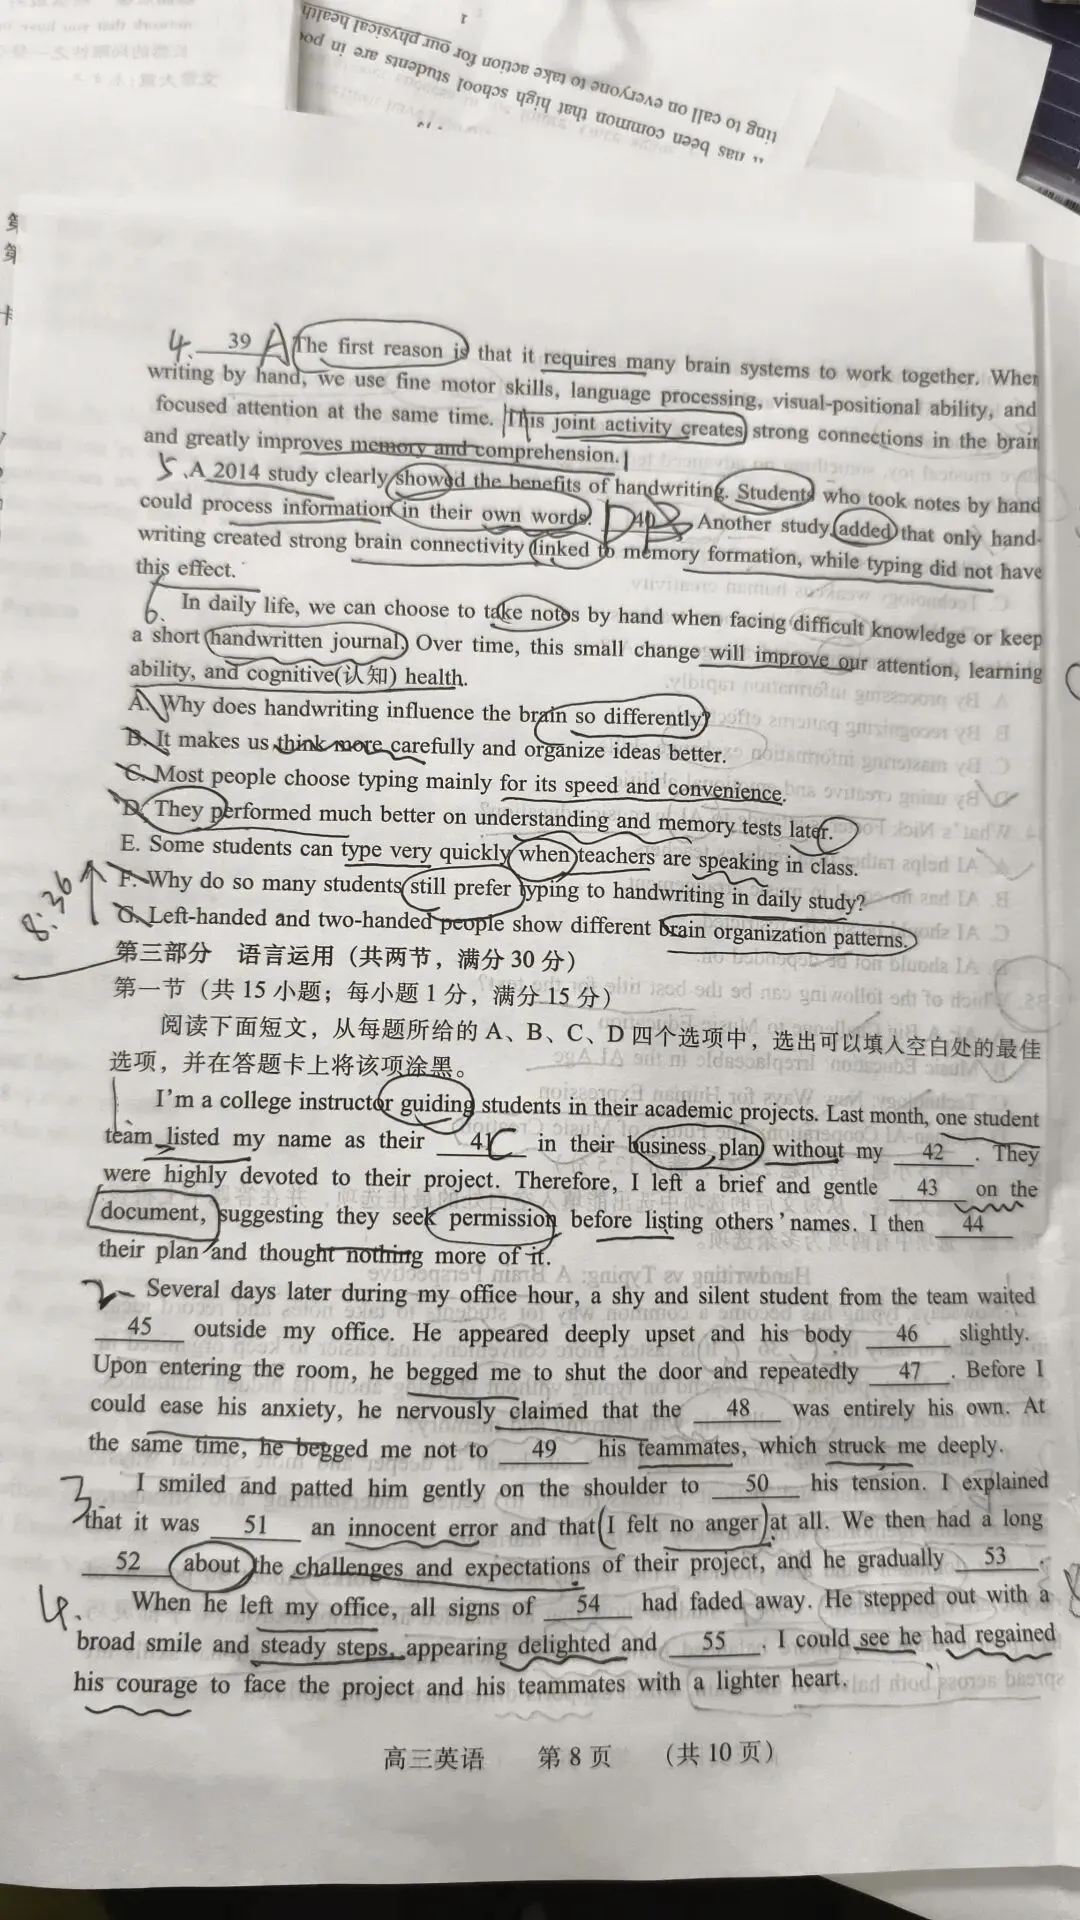 ting to call on everyone to take action for our physical health
has been common that high school students are in poo
1
4. 39 A The first reason is that it requires many brain systems to work together. When
writing by hand, we use fine motor skills, language processing, visual-positional ability, and
focused attention at the same time. This joint activity creates strong connections in the brain
and greatly improves memory and comprehension.
5. A 2014 study clearly showed the benefits of handwriting. Students who took notes by hand
could process information in their own words. D 40 Another study added that only hand-
writing created strong brain connectivity linked to memory formation, while typing did not have
this effect.
6. In daily life, we can choose to take notes by hand when facing difficult knowledge or keep
a short handwritten journal. Over time, this small change will improve our attention, learning
ability, and cognitive(认知) health.
A. Why does handwriting influence the brain so differently?
B. It makes us think more carefully and organize ideas better.
C. Most people choose typing mainly for its speed and convenience.
D. They performed much better on understanding and memory tests later.
E. Some students can type very quickly when teachers are speaking in class.
8:36
F. Why do so many students still prefer typing to handwriting in daily study?
G. Left-handed and two-handed people show different brain organization patterns.
第三部分 语言运用（共两节，满分 30 分）
第一节（共 15 小题；每小题 1 分，满分 15 分）
阅读下面短文，从每题所给的 A、B、C、D 四个选项中，选出可以填入空白处的最佳
选项，并在答题卡上将该项涂黑。
I'm a college instructor guiding students in their academic projects. Last month, one student
team listed my name as their 41 C in their business plan without my 42 . They
were highly devoted to their project. Therefore, I left a brief and gentle 43 on the
document, suggesting they seek permission before listing others' names. I then 44
their plan and thought nothing more of it.
2 Several days later during my office hour, a shy and silent student from the team waited
45 outside my office. He appeared deeply upset and his body 46 slightly.
Upon entering the room, he begged me to shut the door and repeatedly 47 . Before I
could ease his anxiety, he nervously claimed that the 48 was entirely his own. At
the same time, he begged me not to 49 his teammates, which struck me deeply.
3. I smiled and patted him gently on the shoulder to 50 his tension. I explained
that it was 51 an innocent error and that I felt no anger at all. We then had a long
52 about the challenges and expectations of their project, and he gradually 53 .
4. When he left my office, all signs of 54 had faded away. He stepped out with a
broad smile and steady steps, appearing delighted and 55 . I could see he had regained
his courage to face the project and his teammates with a lighter heart.
高三英语 第 8 页 （共 10 页）